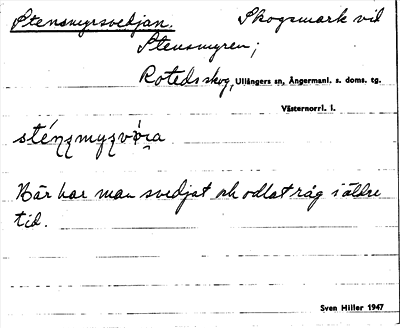 Stensmyrsvedjan. Skogsmark vid
Stensmyren;
Roteds skog, Ullångers sn, Ångermanl. s. doms. tg.
Västernorrl. l.
Här har man svedjat och odlat råg i äldre
tid.
Sven Hiller 1947